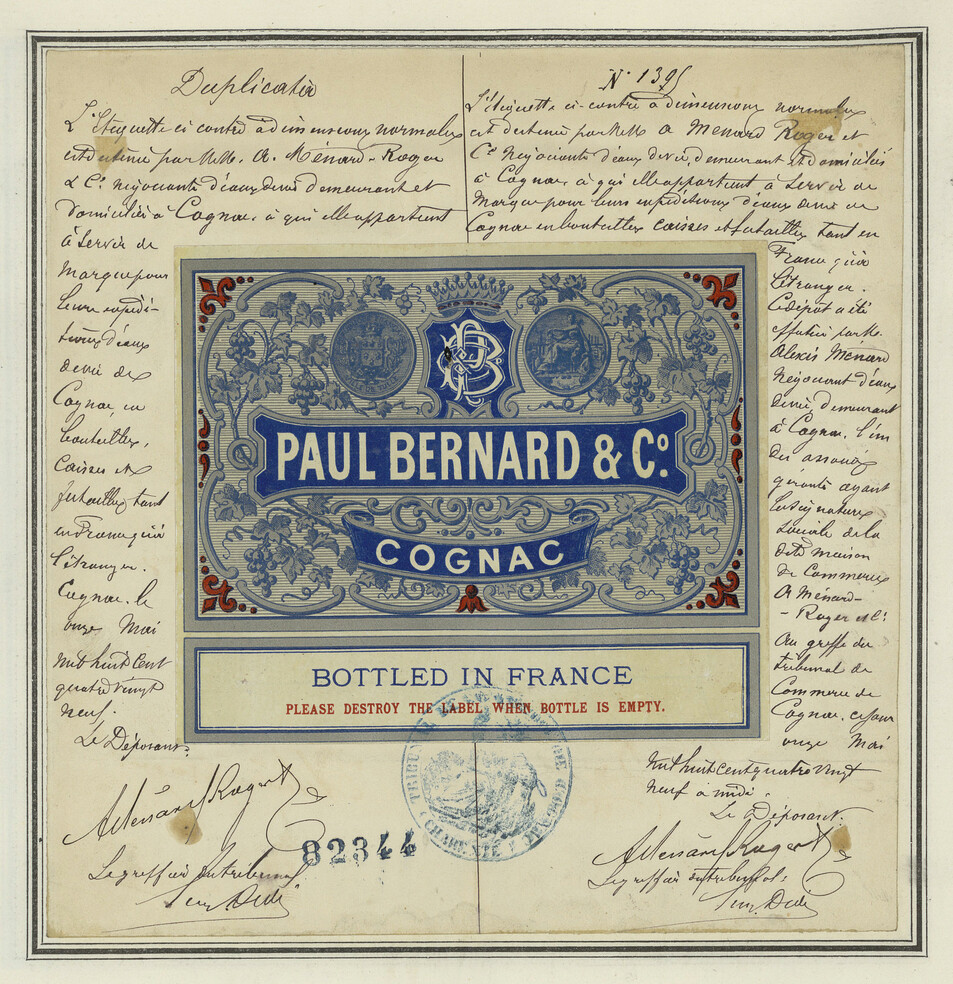 Duplicata
L'Etiquette ci contre à dimensions normales
est destinée par MM. A. Ménard-Roger
& Cie négociants d'eaux de vie demeurant et
domiciliés à Cognac, à qui elle appartient
à servir de
marque pour
leurs expédi-
tions d'eaux
de vie de
Cognac, en
bouteilles,
caisses et
futailles tant
en France qu'à
l'étranger.
Cognac, le
onze Mai
mil huit cent
quatre vingt
neuf.
Le Déposant.
A Ménard Roger & C
Le greffier du tribunal
N° 139
L'étiquette ci-contre à dimensions normales
est destinée par MM. A Ménard Roger et
Cie Négociants d'eaux de vie, demeurant et domiciliés
à Cognac, à qui elle appartient à servir de
Marque pour leurs expéditions d'eaux de vie de
Cognac en bouteilles caisses et futailles tant en
France qu'à
l'étranger.
Ce dépôt a été
effectué par M.
Alexis Ménard
Négociant d'eaux
de vie, demeurant
à Cognac, l'un
des associés
gérants ayant
la signature
sociale de la
dite maison
de Commerce
A Ménard-
-Roger et Cie
Au greffe du
tribunal de
Commerce de
Cognac, ce jour
onze Mai
mil huit cent quatre vingt
neuf à midi.
Le Déposant.
A Ménard Roger & C
Le greffier du tribunal
PAUL BERNARD & Co.
COGNAC
BOTTLED IN FRANCE
PLEASE DESTROY THE LABEL WHEN BOTTLE IS EMPTY.
TRIBUNAL DE COMMERCE DE COGNAC
CHARENTE
82344